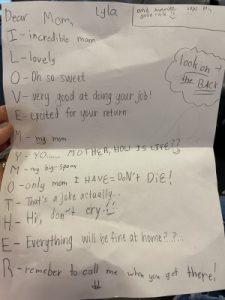 Dear Mom,
Lyla
I - incredible mom
L - lovely
O - Oh so sweet
V - very good at doing your job!
E - excited for your return
look on
the BACK
M - my mom
Y - YO...... MOTHER, HOW IS LIFE??
M - my big-spoon
O - only mom I HAVE = DON'T DIE!
T - That's a joke actually...
H - Hi, don't cry
E - Everything will be fine at home?..?...
R - remeber to call me when you get there!